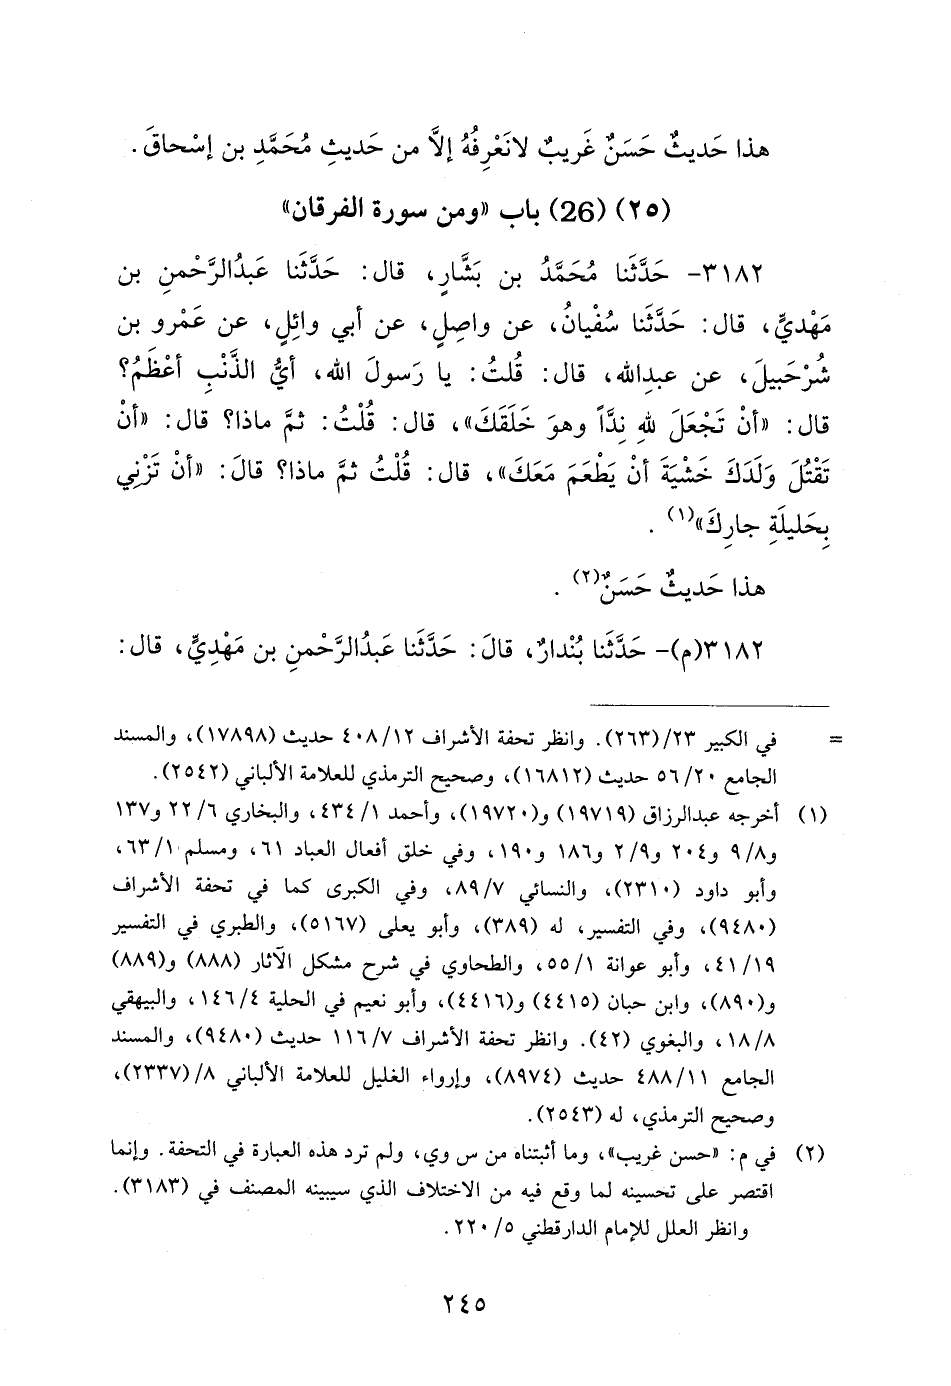 هذا حَديثٌ حَسَنٌ غَريبٌ لانَعْرِفُهُ إلاَّ من حَديثِ مُحَمَّدِ بن إسْحاقَ.
(٢٥) (26) باب «ومن سورة الفرقان»
٣١٨٢- حَدَّثَنا مُحَمَّدُ بن بَشَّارٍ، قال: حَدَّثَنا عَبدُالرَّحْمنِ بن
مَهْديٍّ، قال: حَدَّثَنا سُفْيانُ، عن واصِلٍ، عن أبي وائِلٍ، عن عَمْرِو بن
شُرْحَبيلَ، عن عبدِالله، قال: قُلتُ: يا رَسولَ الله، أيُّ الذَّنْبِ أعْظَمُ؟
قال: «أنْ تَجْعَلَ للهِ نِدَّاً وهوَ خَلَقَكَ»، قال: قُلْتُ: ثمَّ ماذا؟ قال: «أنْ
تَقْتُلَ وَلَدَكَ خَشْيَةَ أنْ يَطْعَمَ مَعَكَ»، قال: قُلْتُ ثمَّ ماذا؟ قالَ: «أنْ تَزْنِي
بِحَليلَةِ جارِكَ»(١) .
هذا حَديثٌ حَسَنٌ(٢) .
٣١٨٢(م)- حَدَّثَنا بُنْدارٌ، قالَ: حَدَّثَنا عَبدُالرَّحْمنِ بن مَهْدِيٍّ، قال:
= في الكبير ٢٣/(٢٦٣). وانظر تحفة الأشراف ٤٠٨/١٢ حديث (١٧٨٩٨)، والمسند
الجامع ٥٦/٢٠ حديث (١٦٨١٢)، وصحيح الترمذي للعلامة الألباني (٢٥٤٢).
(١) أخرجه عبدالرزاق (١٩٧١٩) و(١٩٧٢٠)، وأحمد ٤٣٤/١، والبخاري ٢٢/٦ و١٣٧
و٩/٨ و٢٠٤ و٢/٩ و١٨٦ و١٩٠، وفي خلق أفعال العباد ٦١، ومسلم ٦٣/١،
وأبو داود (٢٣١٠)، والنسائي ٨٩/٧، وفي الكبرى كما في تحفة الأشراف
(٩٤٨٠)، وفي التفسير، له (٣٨٩)، وأبو يعلى (٥١٦٧)، والطبري في التفسير
٤١/١٩، وأبو عوانة ٥٥/١، والطحاوي في شرح مشكل الآثار (٨٨٨) و(٨٨٩)
و(٨٩٠)، وابن حبان (٤٤١٥) و(٤٤١٦)، وأبو نعيم في الحلية ١٤٦/٤، والبيهقي
١٨/٨، والبغوي (٤٢). وانظر تحفة الأشراف ١١٦/٧ حديث (٩٤٨٠)، والمسند
الجامع ٤٨٨/١١ حديث (٨٩٧٤)، وإرواء الغليل للعلامة الألباني ٨/(٢٣٣٧)،
وصحيح الترمذي، له (٢٥٤٣).
(٢) في م: «حسن غريب»، وما أثبتناه من س وي، ولم ترد هذه العبارة في التحفة. وإنما
اقتصر على تحسينه لما وقع فيه من الاختلاف الذي سيبينه المصنف في (٣١٨٣).
وانظر العلل للإمام الدارقطني ٢٢٠/٥.
٢٤٥